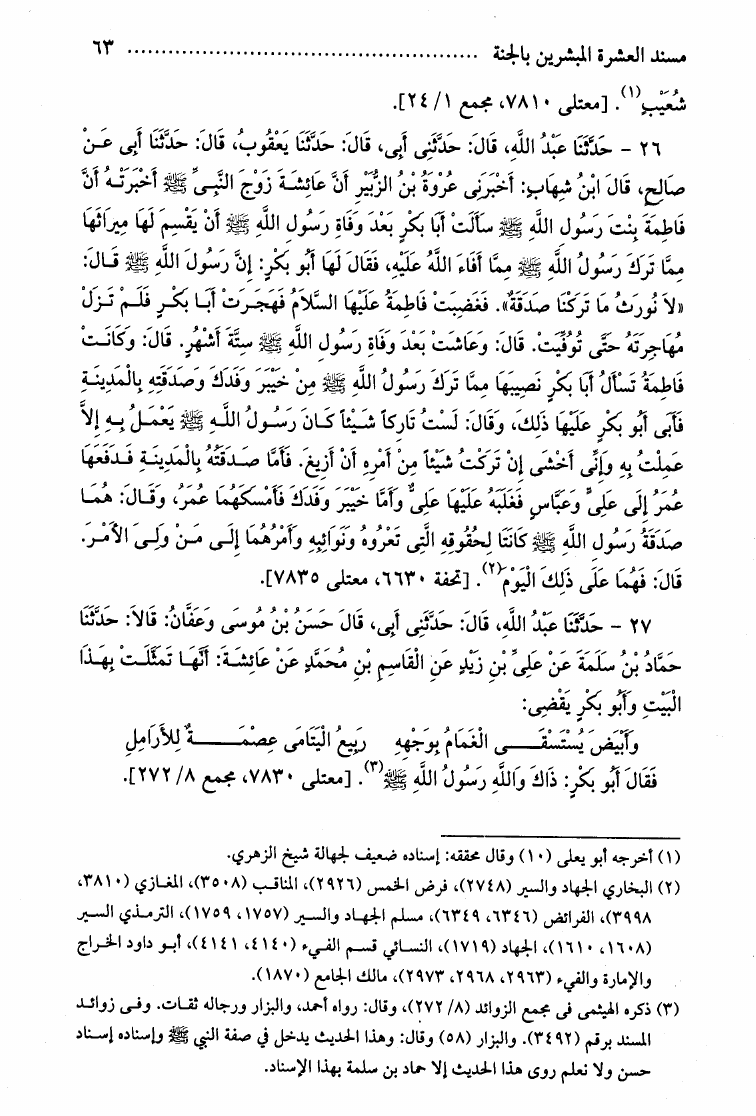 مسند العشرة المبشرين بالجنة ................................................ ٦٣
شُعَيْبٍ(١). [معتلى ٧٨١٠، مجمع ١/ ٢٤].
٢٦ – حَدَّثَنَا عَبْدُ اللَّهِ، قَالَ: حَدَّثَنِى أَبِى، قَالَ: حَدَّثَنَا يَعْقُوبُ، قَالَ: حَدَّثَنَا أَبِى عَنْ
صَالِحٍ، قَالَ ابْنُ شِهَابٍ: أَخْبَرَنِى عُرْوَةُ بْنُ الزُّبَيْرِ أَنَّ عَائِشَةَ زَوْجَ النَّبِىِّ ﷺ أَخْبَرَتْهُ أَنَّ
فَاطِمَةَ بِنْتَ رَسُولِ اللَّهِ ﷺ سَأَلَتْ أَبَا بَكْرٍ بَعْدَ وَفَاةِ رَسُولِ اللَّهِ ﷺ أَنْ يَقْسِمَ لَهَا مِيرَاثَهَا
مِمَّا تَرَكَ رَسُولُ اللَّهِ ﷺ مِمَّا أَفَاءَ اللَّهُ عَلَيْهِ، فَقَالَ لَهَا أَبُو بَكْرٍ: إِنَّ رَسُولَ اللَّهِ ﷺ قَالَ:
«لاَ نُورَثُ مَا تَرَكْنَا صَدَقَةٌ». فَغَضِبَتْ فَاطِمَةُ عَلَيْهَا السَّلاَمُ فَهَجَرَتْ أَبَا بَكْرٍ فَلَمْ تَزَلْ
مُهَاجِرَتَهُ حَتَّى تُوُفِّيَتْ. قَالَ: وَعَاشَتْ بَعْدَ وَفَاةِ رَسُولِ اللَّهِ ﷺ سِتَّةَ أَشْهُرٍ. قَالَ: وَكَانَتْ
فَاطِمَةُ تَسْأَلُ أَبَا بَكْرٍ نَصِيبَهَا مِمَّا تَرَكَ رَسُولُ اللَّهِ ﷺ مِنْ خَيْبَرَ وَفَدَكَ وَصَدَقَتِهِ بِالْمَدِينَةِ
فَأَبَى أَبُو بَكْرٍ عَلَيْهَا ذَلِكَ، وَقَالَ: لَسْتُ تَارِكاً شَيْئاً كَانَ رَسُولُ اللَّهِ ﷺ يَعْمَلُ بِهِ إِلاَّ
عَمِلْتُ بِهِ وَإِنِّى أَخْشَى إِنْ تَرَكْتُ شَيْئاً مِنْ أَمْرِهِ أَنْ أَزِيغَ. فَأَمَّا صَدَقَتُهُ بِالْمَدِينَةِ فَدَفَعَهَا
عُمَرُ إِلَى عَلِىٍّ وَعَبَّاسٍ فَغَلَبَهُ عَلَيْهَا عَلِىٌّ وَأَمَّا خَيْبَرُ وَفَدَكُ فَأَمْسَكَهُمَا عُمَرُ، وَقَالَ: هُمَا
صَدَقَةُ رَسُولِ اللَّهِ ﷺ كَانَتَا لِحُقُوقِهِ الَّتِى تَعْرُوهُ وَنَوَائِبِهِ وَأَمْرُهُمَا إِلَى مَنْ وَلِىَ الأَمْرَ.
قَالَ: فَهُمَا عَلَى ذَلِكَ الْيَوْمَ(٢). [تحفة ٦٦٣٠، معتلى ٧٨٣٥].
٢٧ – حَدَّثَنَا عَبْدُ اللَّهِ، قَالَ: حَدَّثَنِى أَبِى، قَالَ حَسَنُ بْنُ مُوسَى وَعَفَّانُ: قَالاَ: حَدَّثَنَا
حَمَّادُ بْنُ سَلَمَةَ عَنْ عَلِىِّ بْنِ زَيْدٍ عَنِ الْقَاسِمِ بْنِ مُحَمَّدٍ عَنْ عَائِشَةَ: أَنَّهَا تَمَثَّلَتْ بِهَذَا
الْبَيْتِ وَأَبُو بَكْرٍ يَقْضِى:
وَأَبْيَضَ يُسْتَسْقَـــى الْغَمَامُ بِوَجْهِهِ رَبِيعُ الْيَتَامَى عِصْمَـــــةٌ لِلأَرَامِلِ
فَقَالَ أَبُو بَكْرٍ: ذَاكَ وَاللَّهِ رَسُولُ اللَّهِ ﷺ(٣). [معتلى ٧٨٣٠، مجمع ٨/ ٢٧٢].
(١) أخرجه أبو يعلى (١٠) وقال محققه: إسناده ضعيف لجهالة شيخ الزهري.
(٢) البخاري الجهاد والسير (٢٧٤٨)، فرض الخمس (٢٩٢٦)، المناقب (٣٥٠٨)، المغازي (٣٨١٠،
٣٩٩٨)، الفرائض (٦٣٤٦، ٦٣٤٩)، مسلم الجهاد والسير (١٧٥٧، ١٧٥٩)، الترمذي السير
(١٦٠٨، ١٦١٠)، الجهاد (١٧١٩)، النسائي قسم الفيء (٤١٤٠، ٤١٤١)، أبو داود الخراج
والإمارة والفيء (٢٩٦٣، ٢٩٦٨، ٢٩٧٣)، مالك الجامع (١٨٧٠).
(٣) ذكره الهيثمى فى مجمع الزوائد (٨/ ٢٧٢)، وقال: رواه أحمد، والبزار ورجاله ثقات. وفى زوائد
المسند برقم (٣٤٩٢). والبزار (٥٨) وقال: وهذا الحديث يدخل في صفة النبي ﷺ وإسناده إسناد
حسن ولا نعلم روى هذا الحديث إلا حماد بن سلمة بهذا الإسناد.